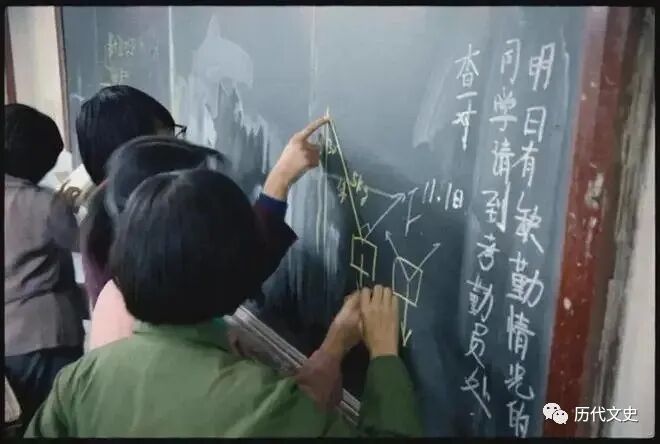 明日有缺勤情况的
同学请到考勤员处
查对
F
历代文史